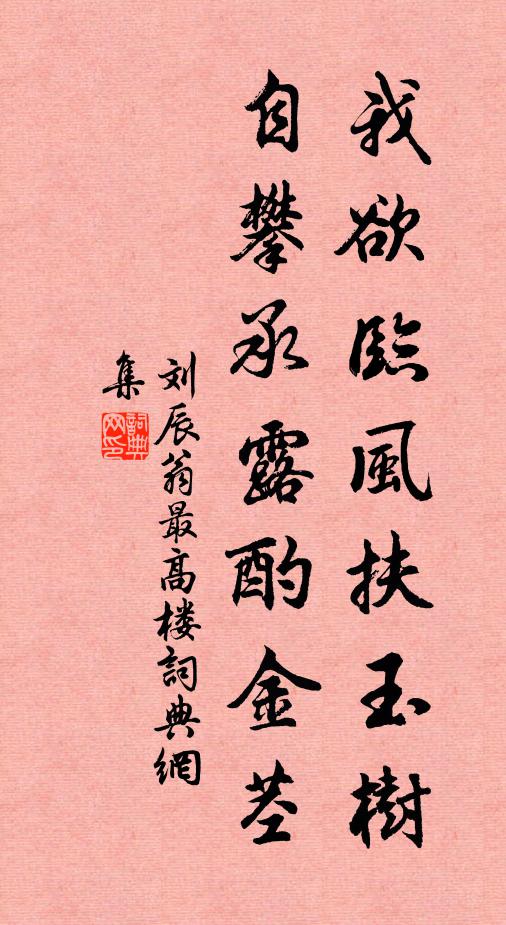 我欲臨風扶玉樹
自攀承露酌金茎
刘辰翁最高楼詞典網
集
詞典网印